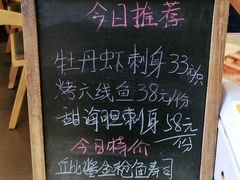 今日推荐
牡丹虾刺身33/颗
烤六线鱼38元/份
甜海胆刺身58元/份
今日特价
丘比酱金枪鱼寿司